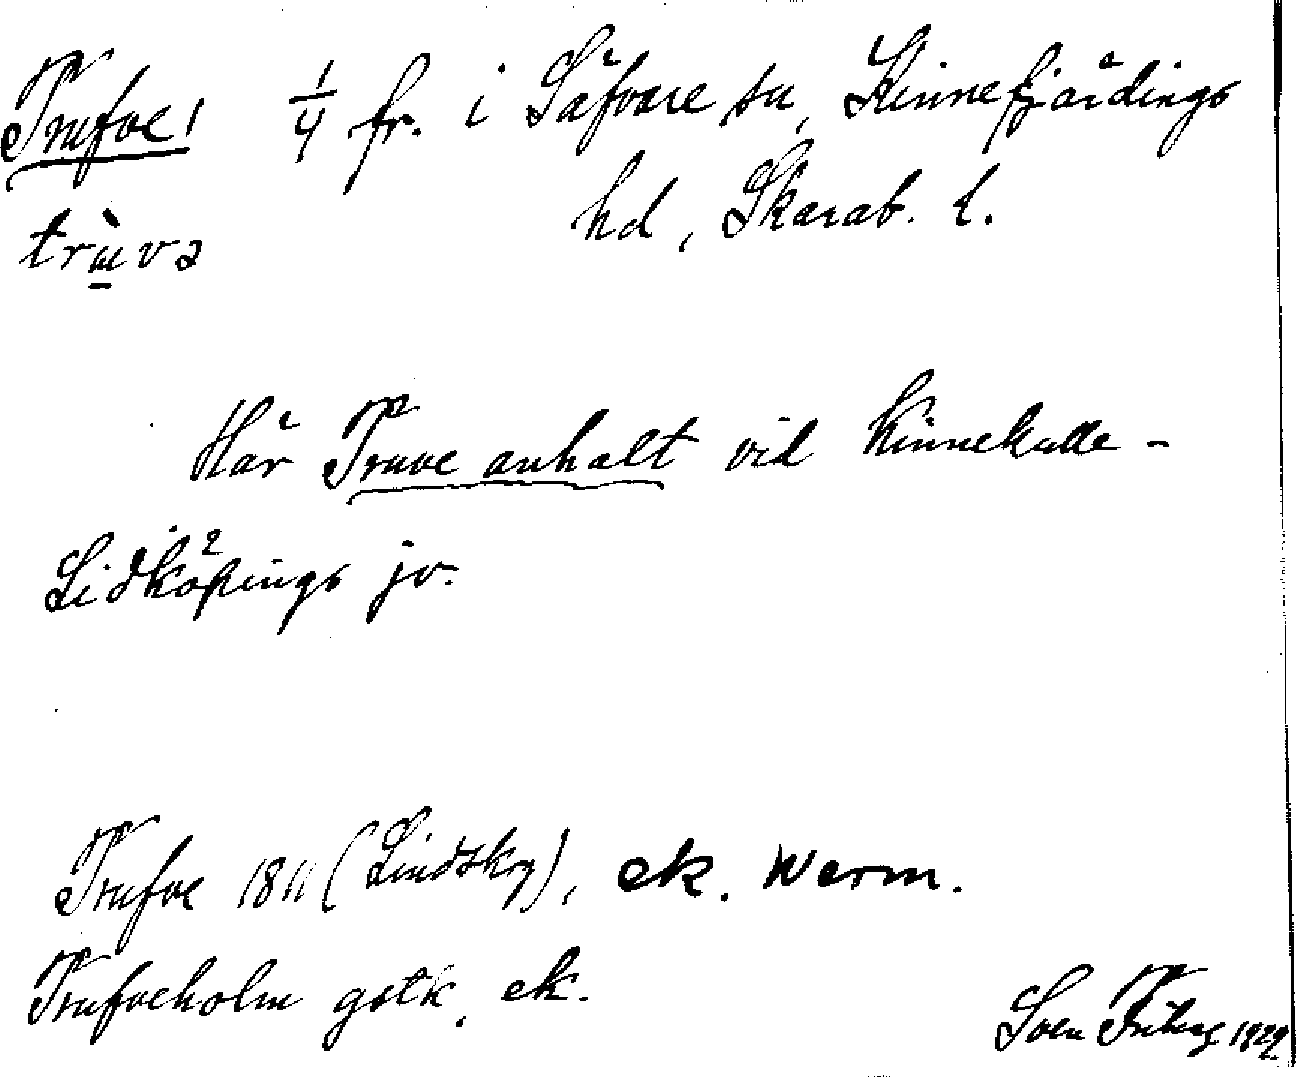 Trufve! 1/4 fr. i Säfvare sn, Kinnefjärdings
hd, Skarab. l.
trùvə
Här Truve anhalt vid Kinnekulle-
Lidköpings jv.
Trufve 1811 (Lindskg), ek. Werm.
Trufveholm gstk, ek.
Sven Friberg 1929